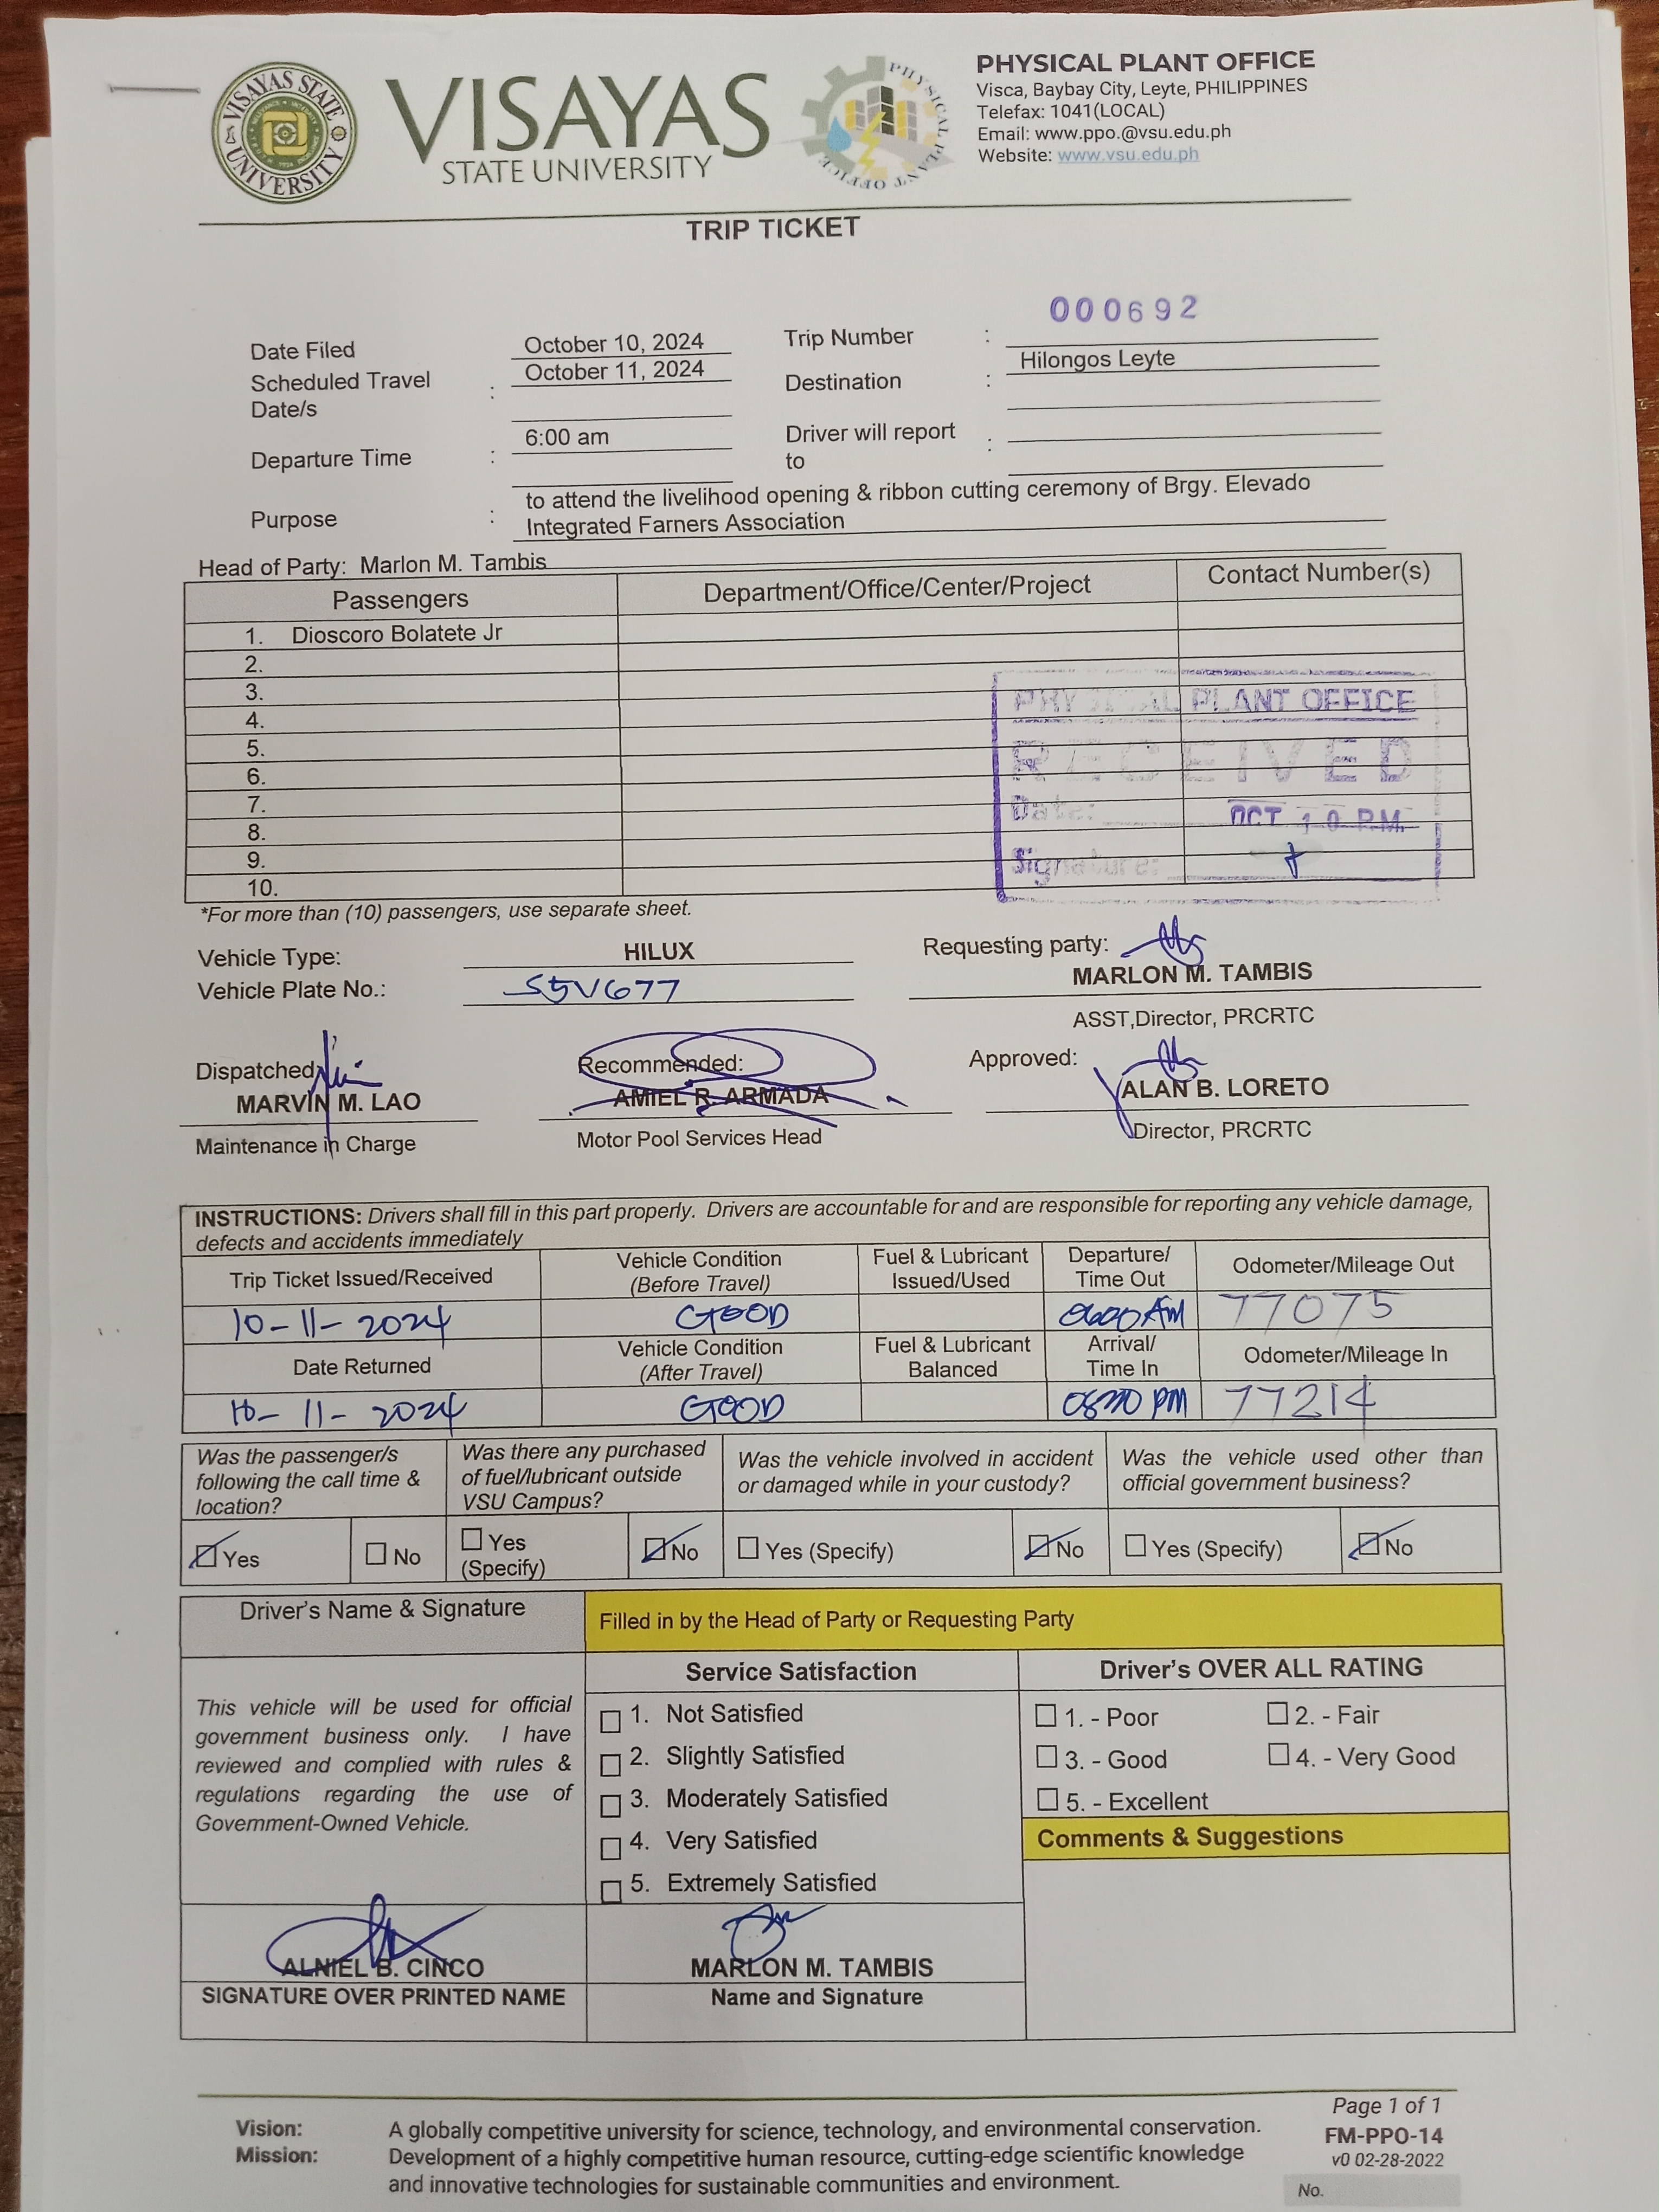 VISAYAS STATE UNIVERSITY
VISAYAS
STATE UNIVERSITY
PHYSICAL PLANT OFFICE
PHYSICAL PLANT OFFICE
Visca, Baybay City, Leyte, PHILIPPINES
Telefax: 1041(LOCAL)
Email: www.ppo.@vsu.edu.ph
Website: www.vsu.edu.ph
TRIP TICKET
000692
Date Filed October 10, 2024 Trip Number :
Scheduled Travel Date/s : October 11, 2024 Destination : Hilongos Leyte
Departure Time : 6:00 am Driver will report to :
Purpose : to attend the livelihood opening & ribbon cutting ceremony of Brgy. Elevado
Integrated Farners Association
Head of Party: Marlon M. Tambis
Passengers Department/Office/Center/Project Contact Number(s)
1. Dioscoro Bolatete Jr
2.
3.
4.
5.
6.
7.
8.
9.
10.
PHYSICAL PLANT OFFICE
RECEIVED
Date: OCT 10 P.M.
Signature:
*For more than (10) passengers, use separate sheet.
Vehicle Type: HILUX
Vehicle Plate No.: S5V677
Requesting party:
MARLON M. TAMBIS
ASST,Director, PRCRTC
Dispatched: Recommended: Approved:
MARVIN M. LAO AMIEL R. ARMADA ALAN B. LORETO
Maintenance in Charge Motor Pool Services Head Director, PRCRTC
INSTRUCTIONS: Drivers shall fill in this part properly. Drivers are accountable for and are responsible for reporting any vehicle damage,
defects and accidents immediately
Trip Ticket Issued/Received Vehicle Condition (Before Travel) Fuel & Lubricant Issued/Used Departure/ Time Out Odometer/Mileage Out
10-11-2024 GOOD AM 77075
Date Returned Vehicle Condition (After Travel) Fuel & Lubricant Balanced Arrival/ Time In Odometer/Mileage In
10-11-2024 GOOD PM 77214
Was the passenger/s following the call time & location?
Was there any purchased of fuel/lubricant outside VSU Campus?
Was the vehicle involved in accident or damaged while in your custody?
Was the vehicle used other than official government business?
Yes No Yes (Specify) No Yes (Specify) No Yes (Specify) No
Driver's Name & Signature
Filled in by the Head of Party or Requesting Party
Service Satisfaction
Driver's OVER ALL RATING
This vehicle will be used for official
government business only. I have
reviewed and complied with rules &
regulations regarding the use of
Government-Owned Vehicle.
1. Not Satisfied
2. Slightly Satisfied
3. Moderately Satisfied
4. Very Satisfied
5. Extremely Satisfied
1. - Poor 2. - Fair
3. - Good 4. - Very Good
5. - Excellent
Comments & Suggestions
ALNIEL B. CINCO
SIGNATURE OVER PRINTED NAME
MARLON M. TAMBIS
Name and Signature
Vision: A globally competitive university for science, technology, and environmental conservation.
Mission: Development of a highly competitive human resource, cutting-edge scientific knowledge
and innovative technologies for sustainable communities and environment.
Page 1 of 1
FM-PPO-14
v0 02-28-2022
No.